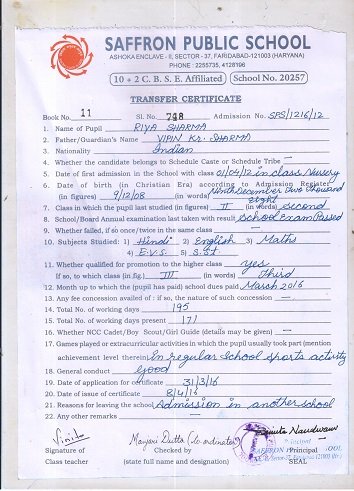 SAFFRON PUBLIC SCHOOL
ASHOKA ENCLAVE - II, SECTOR - 37, FARIDABAD-121003 (HARYANA)
PHONE : 2255735, 4128196
10 + 2 C. B. S. E. Affiliated School No. 20257
TRANSFER CERTIFICATE
Book No. 11 Sl. No. 748 Admission No. SPS/1216/12
1. Name of Pupil RIYA SHARMA
2. Father/Guardian's Name VIPIN Kr. SHARMA
3. Nationality Indian
4. Whether the candidate belongs to Schedule Caste or Schedule Tribe —
5. Date of first admission in the School with class 01/04/12 in class Nursery
6. Date of birth (in Christian Era) according to Admission Register
(in figures) 9/12/08 (in words) Ninth December two thousand
eight
7. Class in which the pupil last studied (in figures) II (in words) Second
8. School/Board Annual examination last taken with result School Exam Passed
9. Whether failed, if so once/twice in the same class —
10. Subjects Studied: 1) Hindi 2) English 3) Maths
4) E.V.S. 5) S.St
11. Whether qualified for promotion to the higher class yes
If so, to which class (in fig.) III (in words) Third
12. Month up to which the (pupil has paid) school dues paid March 2016
13. Any fee concession availed of : if so, the nature of such concession —
14. Total No. of working days 195
15. Total No. of working days present 171
16. Whether NCC Cadet/Boy Scout/Girl Guide (details may be given) —
17. Games played or extracurricular activities in which the pupil usually took part (mention
achievement level therein) In regular School sports activity
18. General conduct Good
19. Date of application for certificate 31/3/16
20. Date of issue of certificate 8/4/16
21. Reasons for leaving the school Admission in another school
22. Any other remarks —
Vinita
Manjari Dutta (Co-ordinator)
Signature of Checked by Principal
Class teacher (state full name and designation) SEAL